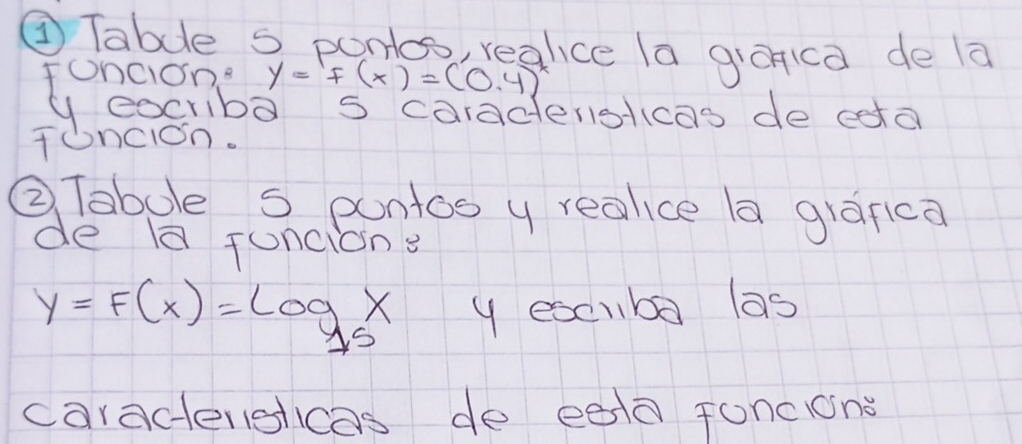 ① Tabule 5 puntos, realice la gráfica de la
función: y = f(x) = (0.4)ˣ
y escriba 5 características de esta
función.
② Tabule 5 puntos y realice la gráfica
de la función:
y = F(x) = Log₁₅ X y escriba las
características de esta función: